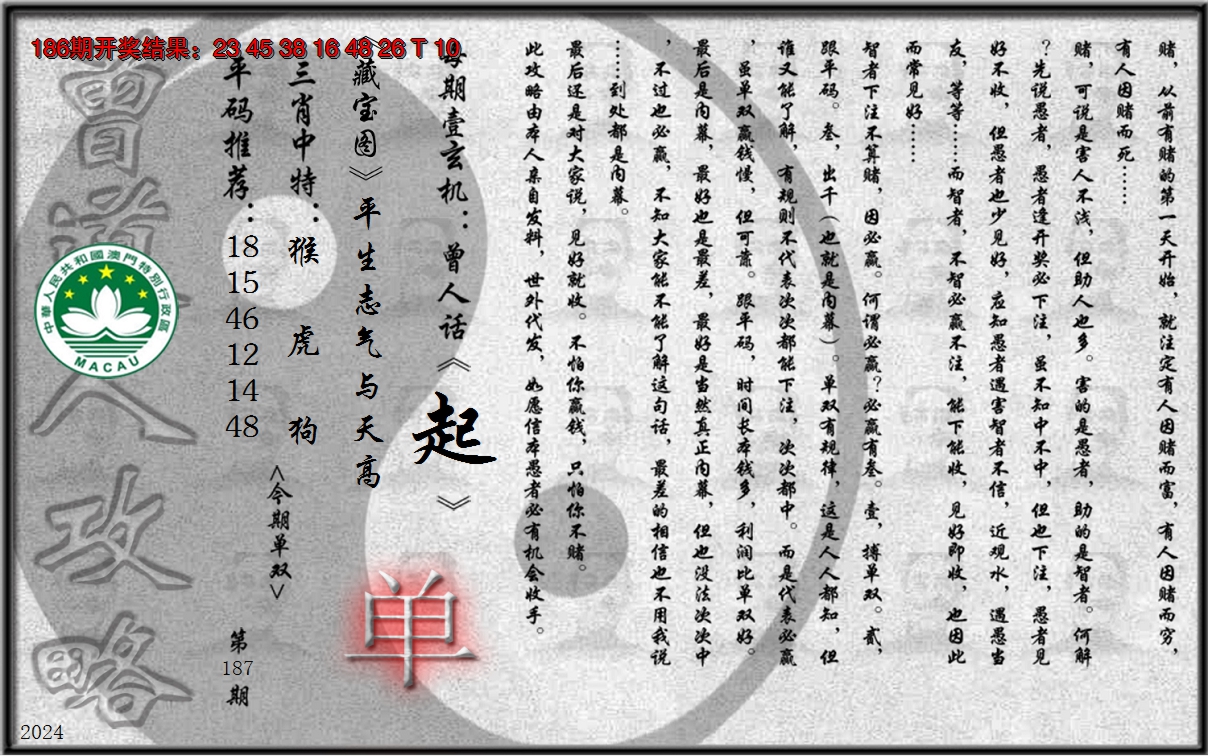 186期开奖结果：23 45 38 16 48 26 T 10
赌，从前有赌的第一天开始，就注定有人因赌而富，有人因赌而穷，
有人因赌而死……
赌，可说是害人不浅，但助人也多。害的是愚者，助的是智者。何解
？先说愚者，愚者逢开奖必下注，虽不知中不中，但也下注，愚者见
好不收，但愚者也少见好，应知愚者遇害智者不信，近观水，遇愚当
友，等等……而智者，不智必赢不注，能下能收，见好即收，也因此
而常见好……
智者下注不算赌，因必赢。何谓必赢？必赢有叁。壹，搏单双。贰，
跟平码。叁，出千（也就是内幕）。单双有规律，这是人人都知，但
谁又能了解，有规则不代表次次都能下注，次次都中。而是代表必赢
，虽单双赢钱慢，但可靠。跟平码，时间长本钱多，利润比单双好。
最后是内幕，最好也是最差，最好是当然真正内幕，但也没法次次中
，不过也必赢，不知大家能不能了解这句话，最差的相信也不用我说
……到处都是内幕。
最后还是对大家说，见好就收。不怕你赢钱，只怕你不赌。
此攻略由本人亲自发料，世外代发，如愿信本愚者必有机会收手。
每期壹玄机：曾人话《起》
《藏宝图》平生志气与天高
单
三肖中特：猴 虎 狗
<今期单双>
平码推荐：
18
15
46
12
14
48
第
187
期
曾道人攻略
中華人民共和國澳門特別行政區
MACAU
2024